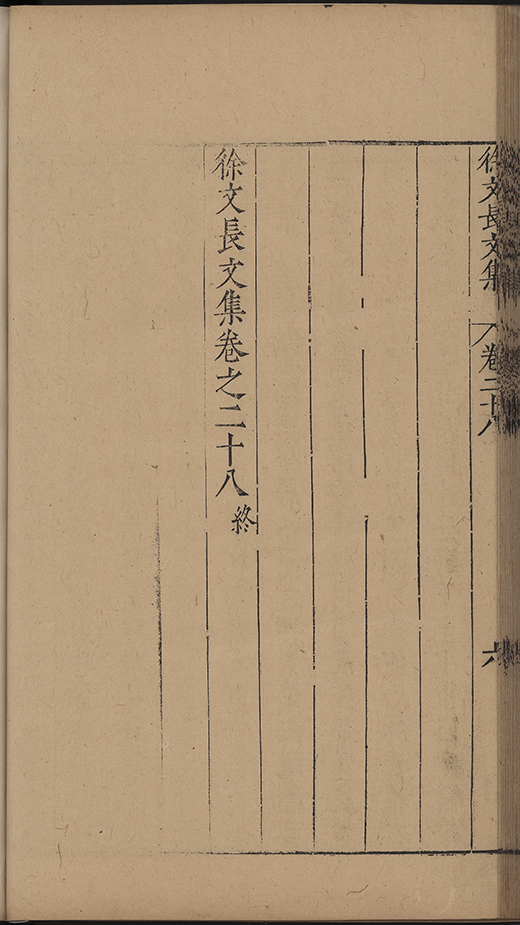 徐文長文集
卷二十八
六
徐文長文集卷之二十八
終